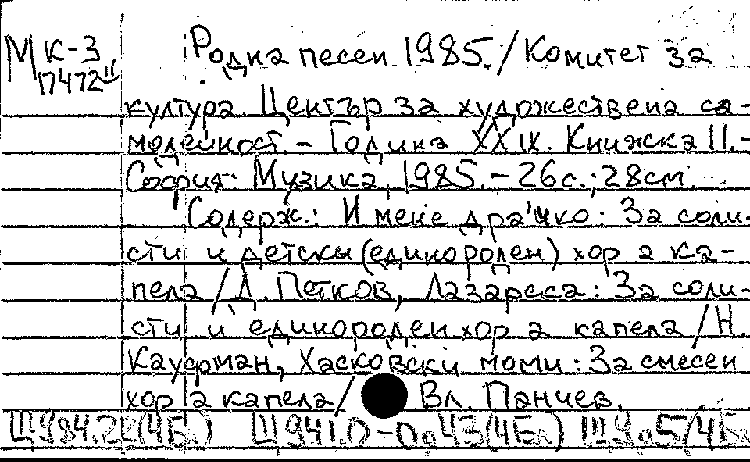 МК-3 Родна песен 1985. / Комитет за
17472 II
култура. Център за художествена са-
модейност. - Година XXIX. Книжка 11. -
София: Музика, 1985. - 26 с.; 28 см.
Содерж.: И мене драгичко: За соли-
сти и детски (еднороден) хор а ка-
пела / Д. Петков, Лазарска: За соли-
сти и еднороден хор а капела / Н.
Кауфман, Хасковски моми: За смесен
хор а капела / Вл. Панчев.